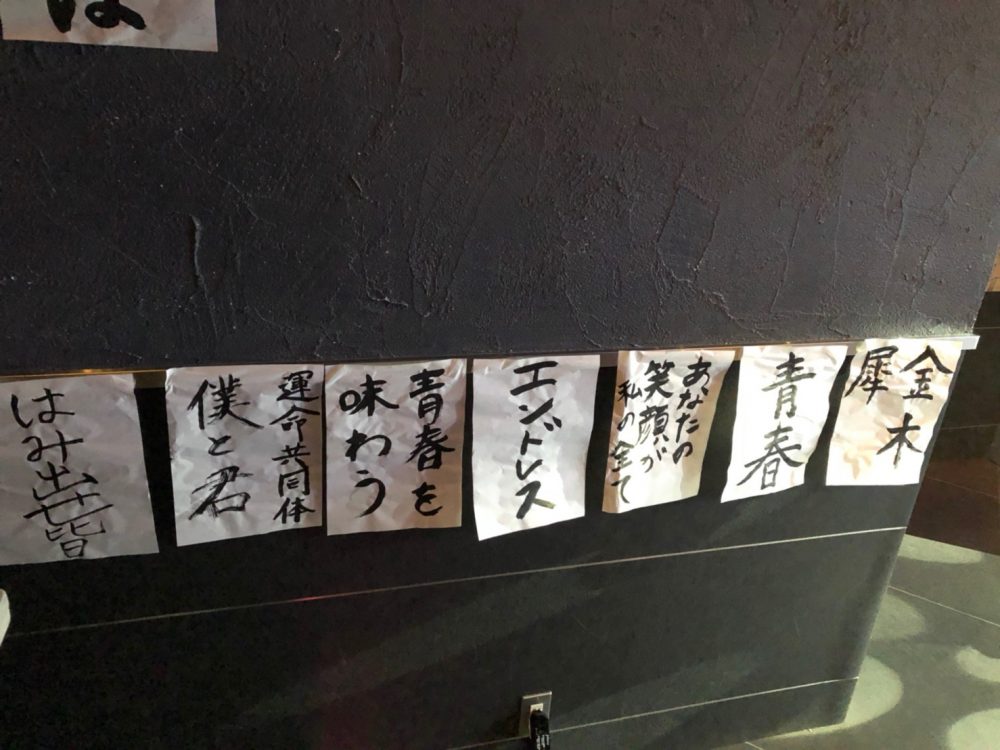 金木
犀
青春
あなたの
笑顔が
私の全て
エンドレス
青春を
味わう
運命共同体
僕と君
はみ出
は